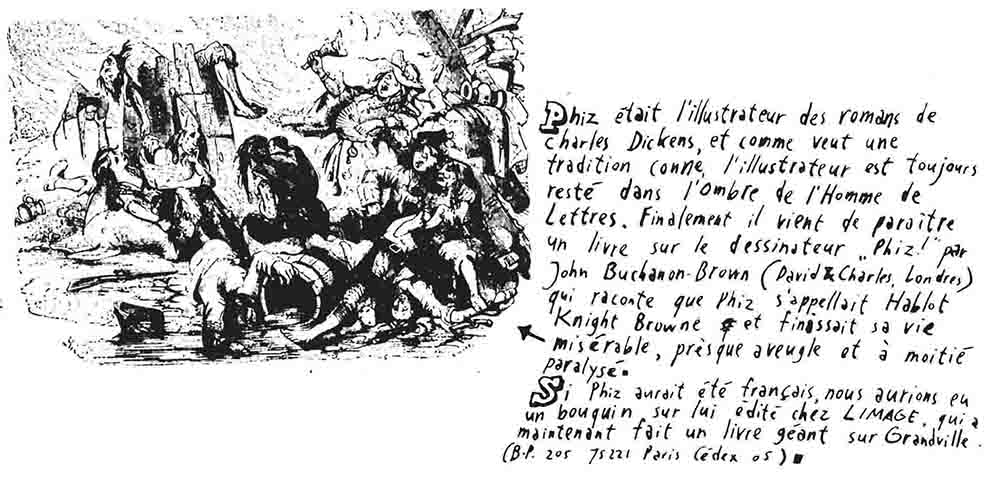 Phiz était l'illustrateur des romans de
charles Dickens, et comme veut une
tradition conne, l'illustrateur est toujours
resté dans l'Ombre de l'Homme de
Lettres. Finalement il vient de paraître
un livre sur le dessinateur „Phiz!" par
John Buchanon-Brown (David & Charles, Londres)
qui raconte que Phiz s'appellait Hablot
Knight Browne et finissait sa vie
misérable, prèsque aveugle et à moitié
paralysé.
Si Phiz aurait été français, nous aurions eu
un bouquin sur lui édité chez LIMAGE, qui a
maintenant fait un livre géant sur Grandville.
(B.P. 205 75221 Paris Cédex 05)